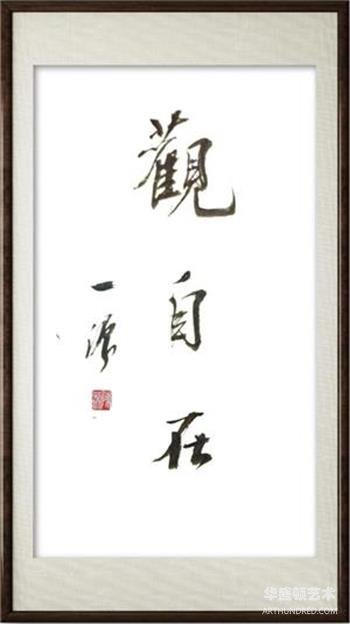 觀自在
一源
华盛顿艺术
ARTHUNDRED.COM